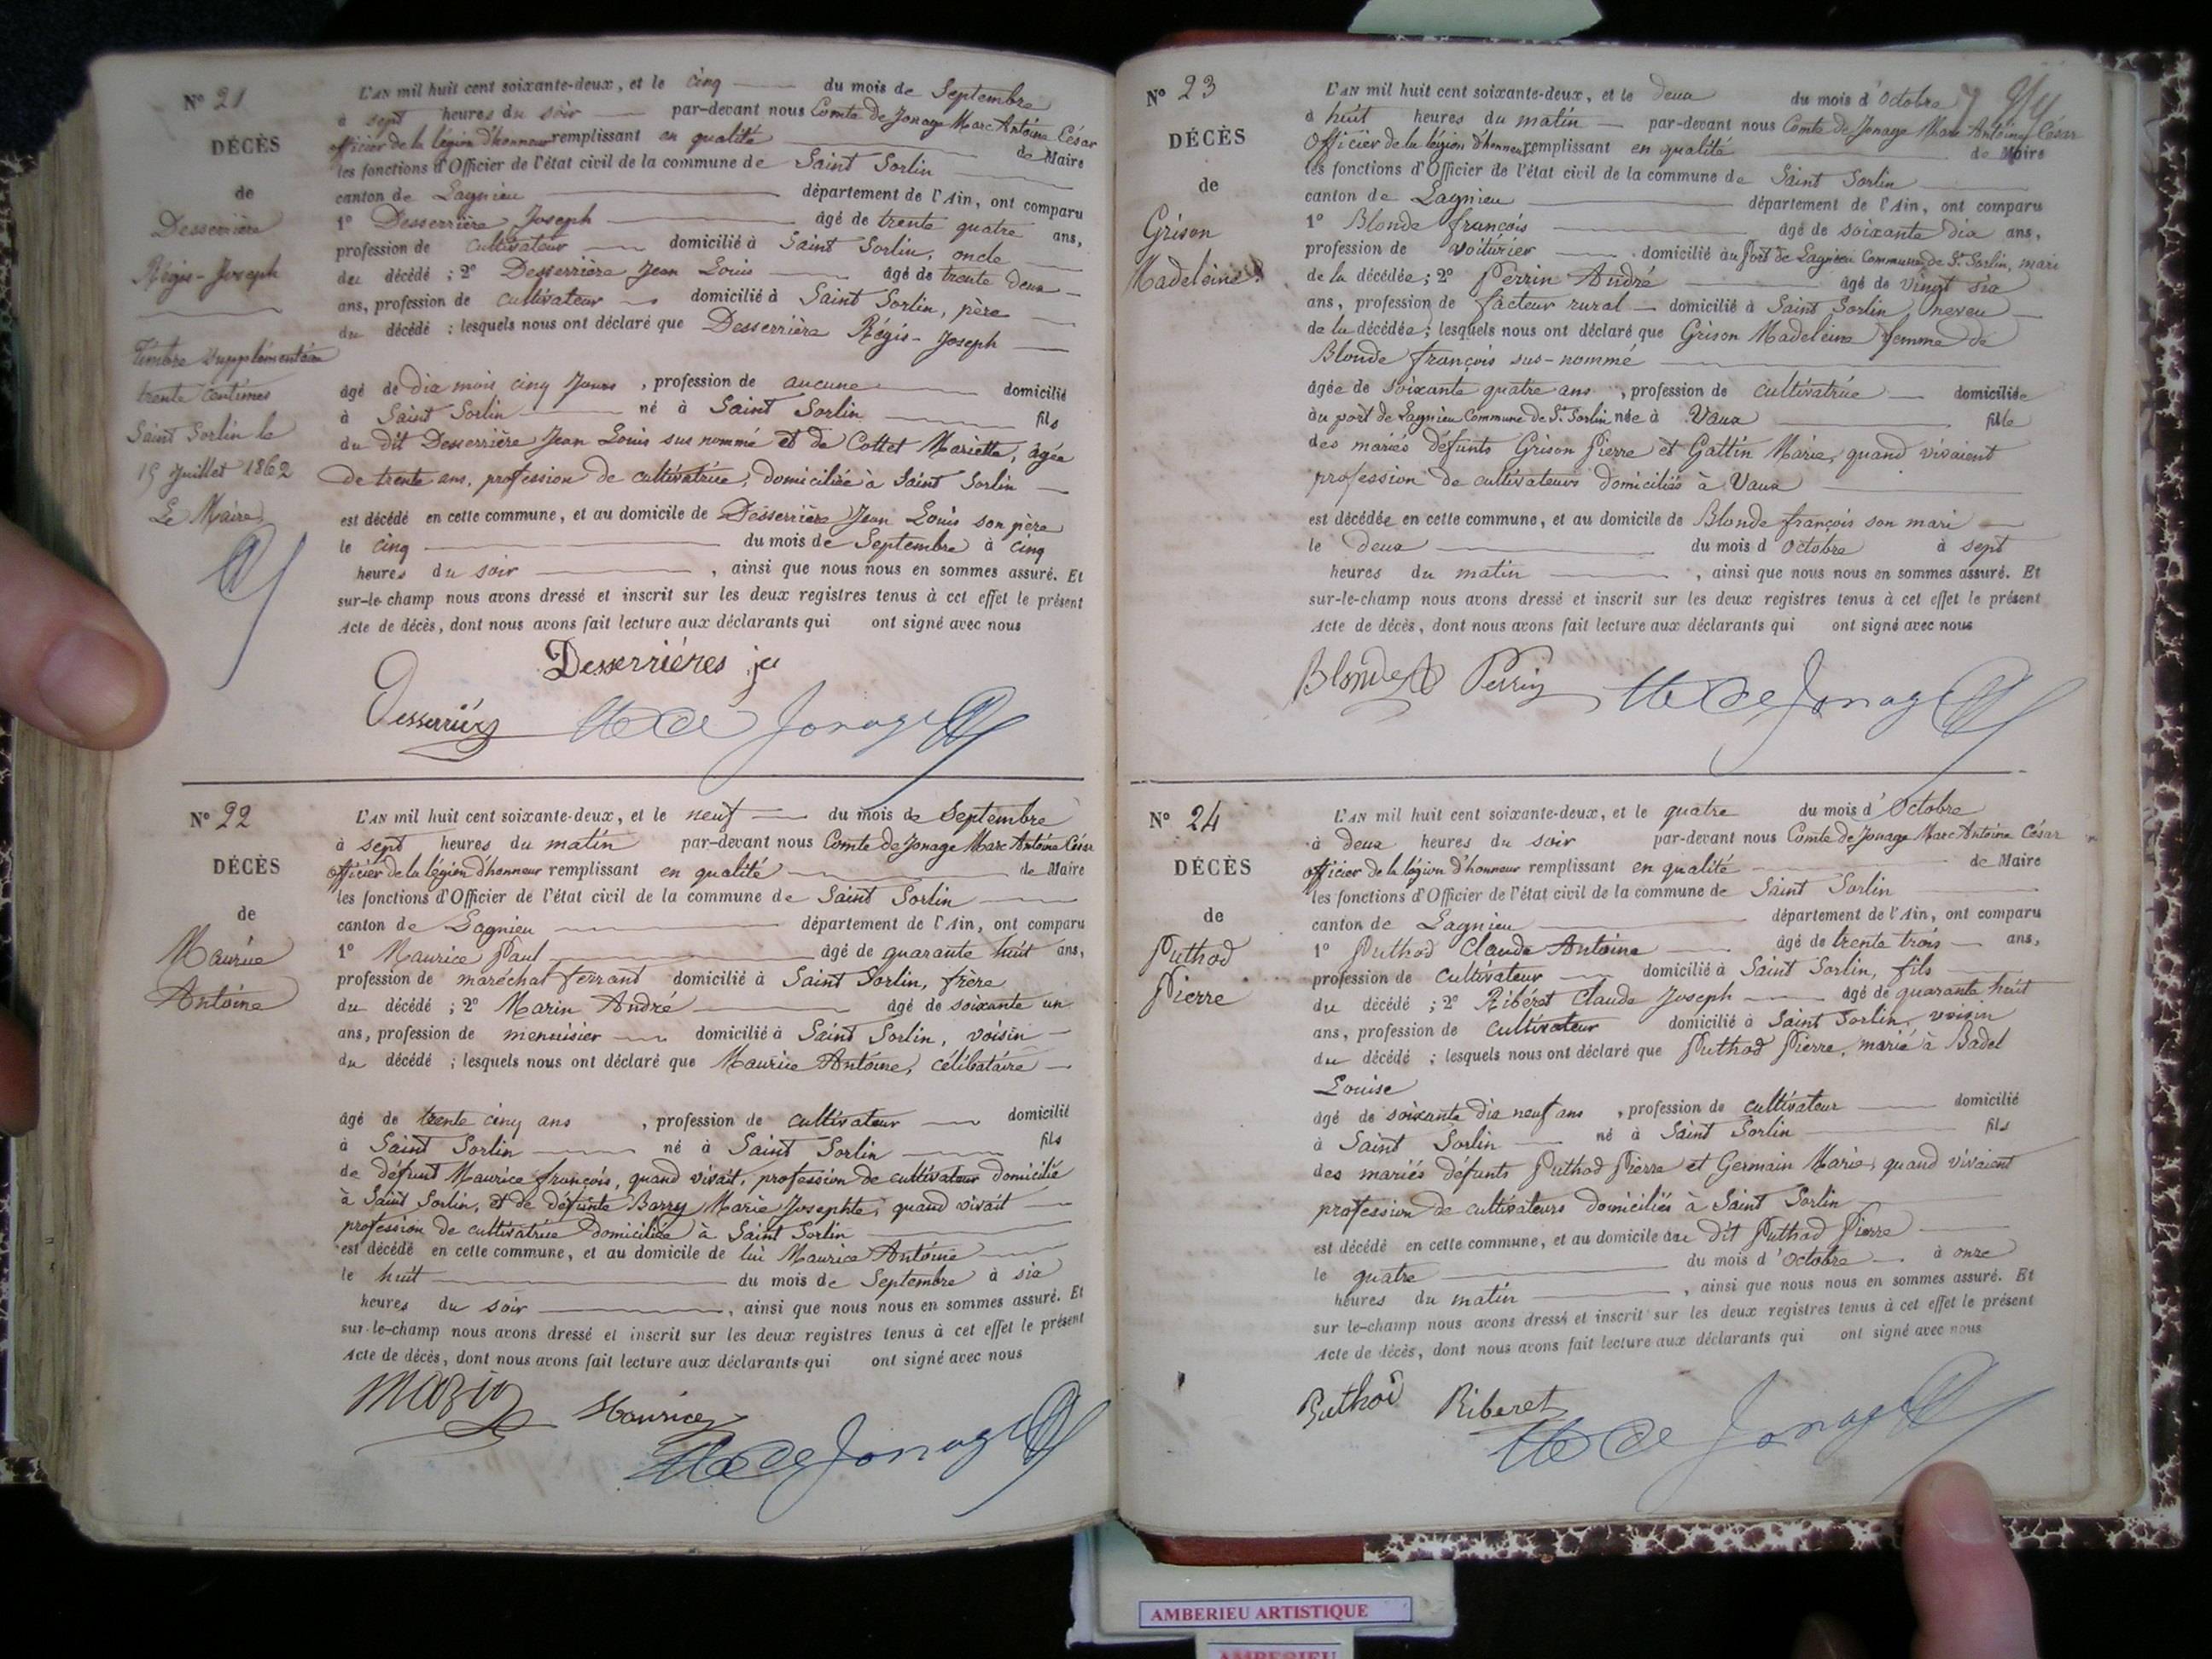 N° 21
DÉCÈS
de
Desserrière
Régis-Joseph
Timbre supplémentaire
trente centimes
Saint Sorlin le
15 Juillet 1862
Le Maire
L'AN mil huit cent soixante-deux, et le cinq du mois de Septembre
à sept heures du soir par-devant nous Comte de Jonage Marc Antoine César
officier de la légion d'honneur remplissant en qualité de Maire
les fonctions d'Officier de l'état civil de la commune de Saint Sorlin
canton de Lagnieu département de l'Ain, ont comparu
1° Desserrière Joseph âgé de trente quatre ans,
profession de cultivateur domicilié à Saint Sorlin, oncle
du décédé ; 2° Desserrière Jean Louis âgé de trente deux
ans, profession de cultivateur domicilié à Saint Sorlin, père
du décédé ; lesquels nous ont déclaré que Desserrière Régis-Joseph
âgé de dix mois cinq jours, profession de aucune domicilié
à Saint Sorlin né à Saint Sorlin fils
du dit Desserrière Jean Louis sus nommé et de Cottet Mariette, âgée
de trente ans, profession de cultivatrice, domiciliée à Saint Sorlin
est décédé en cette commune, et au domicile de Desserrière Jean Louis son père
le cinq du mois de Septembre à cinq
heures du soir, ainsi que nous nous en sommes assuré. Et
sur-le-champ nous avons dressé et inscrit sur les deux registres tenus à cet effet le présent
Acte de décès, dont nous avons fait lecture aux déclarants qui ont signé avec nous
Desserriéres
Desserriéres
de Jonage
N° 22
DÉCÈS
de
Maurice
Antoine
L'AN mil huit cent soixante-deux, et le neuf du mois de Septembre
à sept heures du matin par-devant nous Comte de Jonage Marc Antoine César
officier de la légion d'honneur remplissant en qualité de Maire
les fonctions d'Officier de l'état civil de la commune de Saint Sorlin
canton de Lagnieu département de l'Ain, ont comparu
1° Maurice Paul âgé de quarante huit ans,
profession de maréchal ferrant domicilié à Saint Sorlin, frère
du décédé ; 2° Marin André âgé de soixante un
ans, profession de menuisier domicilié à Saint Sorlin, voisin
du décédé ; lesquels nous ont déclaré que Maurice Antoine, célibataire
âgé de trente cinq ans, profession de cultivateur domicilié
à Saint Sorlin né à Saint Sorlin fils
de défunt Maurice françois, quand vivait, profession de cultivateur domicilié
à Saint Sorlin, et de défunte Barry Marie Josephte, quand vivait
profession de cultivatrice domiciliée à Saint Sorlin
est décédé en cette commune, et au domicile de lui Maurice Antoine
le huit du mois de Septembre à six
heures du soir, ainsi que nous nous en sommes assuré. Et
sur-le-champ nous avons dressé et inscrit sur les deux registres tenus à cet effet le présent
Acte de décès, dont nous avons fait lecture aux déclarants qui ont signé avec nous
Marin Maurice
de Jonage
N° 23
DÉCÈS
de
Grison
Madeleine
L'AN mil huit cent soixante-deux, et le deux du mois d'Octobre
à huit heures du matin par-devant nous Comte de Jonage Marc Antoine César
Officier de la légion d'honneur remplissant en qualité de Maire
les fonctions d'Officier de l'état civil de la commune de Saint Sorlin
canton de Lagnieu département de l'Ain, ont comparu
1° Blonde françois âgé de soixante dix ans,
profession de voiturier domicilié au port de Lagnieu Commune de St Sorlin, mari
de la décédée ; 2° Perrin André âgé de vingt six
ans, profession de facteur rural domicilié à Saint Sorlin, neveu
de la décédée ; lesquels nous ont déclaré que Grison Madeleine femme de
Blonde françois sus-nommé
âgée de soixante quatre ans, profession de cultivatrice domiciliée
au port de Lagnieu Commune de St Sorlin née à Vaux fille
des mariés défunts Grison Pierre et Gattin Marie, quand vivaient
profession de cultivateurs domiciliés à Vaux
est décédée en cette commune, et au domicile de Blonde françois son mari
le deux du mois d'octobre à sept
heures du matin, ainsi que nous nous en sommes assuré. Et
sur-le-champ nous avons dressé et inscrit sur les deux registres tenus à cet effet le présent
Acte de décès, dont nous avons fait lecture aux déclarants qui ont signé avec nous
Blonde Perrin de Jonage
N° 24
DÉCÈS
de
Puthod
Pierre
L'AN mil huit cent soixante-deux, et le quatre du mois d'Octobre
à deux heures du soir par-devant nous Comte de Jonage Marc Antoine César
officier de la légion d'honneur remplissant en qualité de Maire
les fonctions d'Officier de l'état civil de la commune de Saint Sorlin
canton de Lagnieu département de l'Ain, ont comparu
1° Puthod Claude Antoine âgé de trente trois ans,
profession de cultivateur domicilié à Saint Sorlin, fils
du décédé ; 2° Ribéret Claude Joseph âgé de quarante huit
ans, profession de cultivateur domicilié à Saint Sorlin, voisin
du décédé ; lesquels nous ont déclaré que Puthod Pierre, marié à Badel
Louise
âgé de soixante dix neuf ans, profession de cultivateur domicilié
à Saint Sorlin né à Saint Sorlin fils
des mariés défunts Puthod Pierre et Germain Marie, quand vivaient
profession de cultivateurs domiciliés à Saint Sorlin
est décédé en cette commune, et au domicile du dit Puthod Pierre
le quatre du mois d'octobre à onze
heures du matin, ainsi que nous nous en sommes assuré. Et
sur le-champ nous avons dressé et inscrit sur les deux registres tenus à cet effet le présent
Acte de décès, dont nous avons fait lecture aux déclarants qui ont signé avec nous
Puthod Riberet
de Jonage
AMBERIEU ARTISTIQUE
AMBERIEU